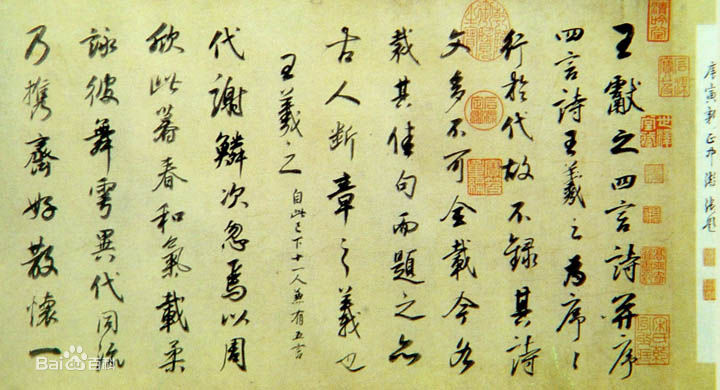 庚寅新正
題
王獻之四言詩并序
四言詩王羲之為序〻
行於代故不錄其詩
文多不可全載今各
裁其佳句而題之亦
古人斷章之義也
王羲之 自此已下十一人並有五言
代謝鱗次忽焉以周
欣此暮春和氣載柔
詠彼舞雩異代同流
乃攜齊好散懷一
Bai百科